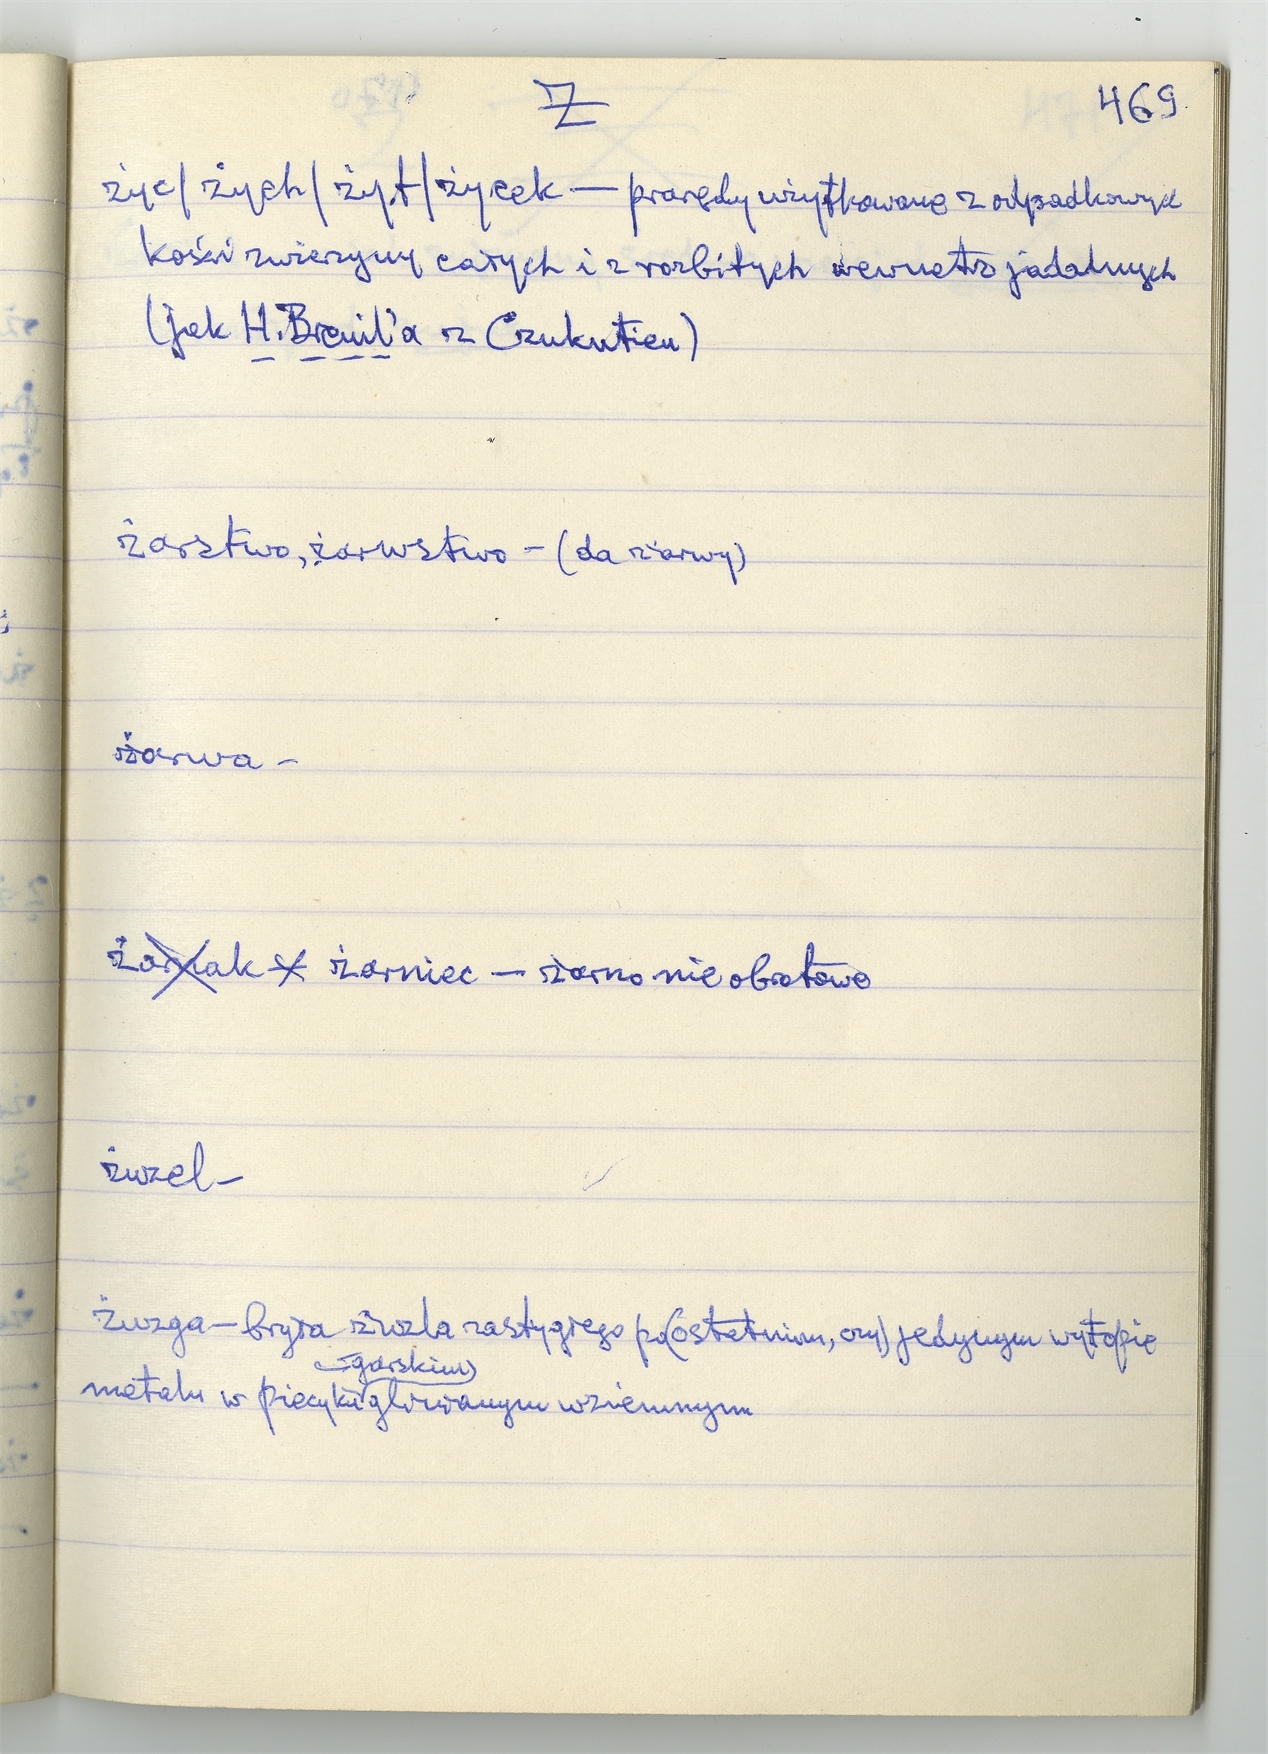 Ż 469
życ/ żych/ żyt/ życek — prarzędy użytkowane z odpadkowych
kości zwierzyny całych i z rozbitych wewnątrz jadalnych
(jak H. Breuil'a z Czukutien)
żarstwo, żarwstwo – (da żarwy)
żarwa –
żarnak x żarniec — żarno nie obrotowe
żuzel –
żuzga – bryła żuzla zastygłego po (ostatnim, czy) jedynym wytopie
garskim)
metalu w piecyku glinianym wziemnym